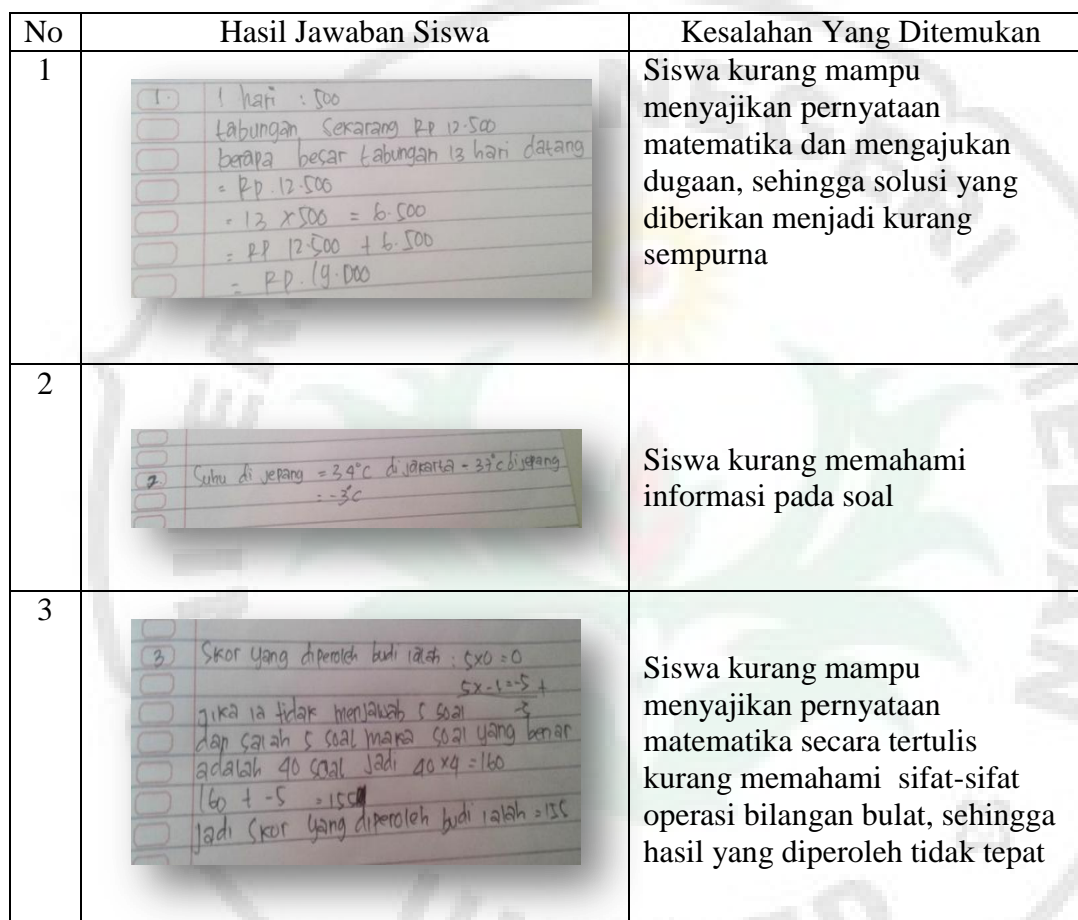 No Hasil Jawaban Siswa Kesalahan Yang Ditemukan
1
1. 1 hari : 500
tabungan Sekarang Rp 12.500
berapa besar tabungan 13 hari datang
= Rp. 12.500
= 13 x 500 = 6.500
= RP 12.500 + 6.500
= RP. 19.000
Siswa kurang mampu
menyajikan pernyataan
matematika dan mengajukan
dugaan, sehingga solusi yang
diberikan menjadi kurang
sempurna
2
2. Suhu di jepang = 34°C di jakarta - 37°C di jepang
= -3°C
Siswa kurang memahami
informasi pada soal
3
3 Skor yang diperoleh budi ialah : 5x0 = 0
5x-1=-5 +
jika ia tidak menjawab 5 soal
dan salah 5 soal maka soal yang benar
adalah 40 soal jadi 40x4 = 160
160 + -5 = 155
Jadi Skor yang diperoleh budi ialah = 155
Siswa kurang mampu
menyajikan pernyataan
matematika secara tertulis
kurang memahami sifat-sifat
operasi bilangan bulat, sehingga
hasil yang diperoleh tidak tepat